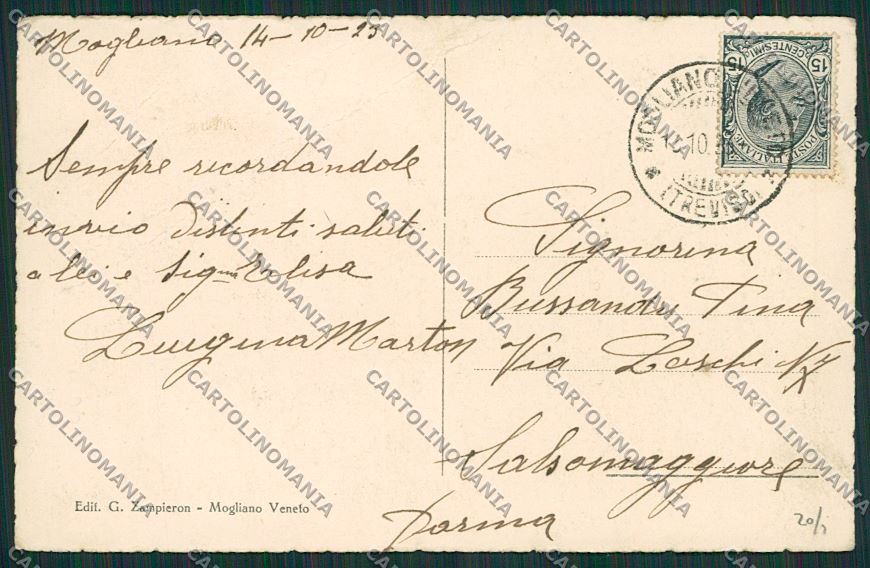 Mogliano 14-10-25
Sempre recordandole
invio distinti saluti
a lei e Sig.na Elisa
Luigina Marton
Edit. G. Zampieron - Mogliano Veneto
15 CENTESIMI 15
POSTE ITALIANE
MOGLIANO VENETO
10
(TREVISO)
Signorina
Bussandu Pina
Via Loschi N
Salsomaggiore
Parma
20/1
CARTOLINOMANIA